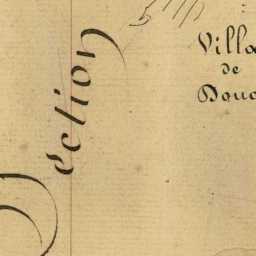 Section
Villa
de
Douc